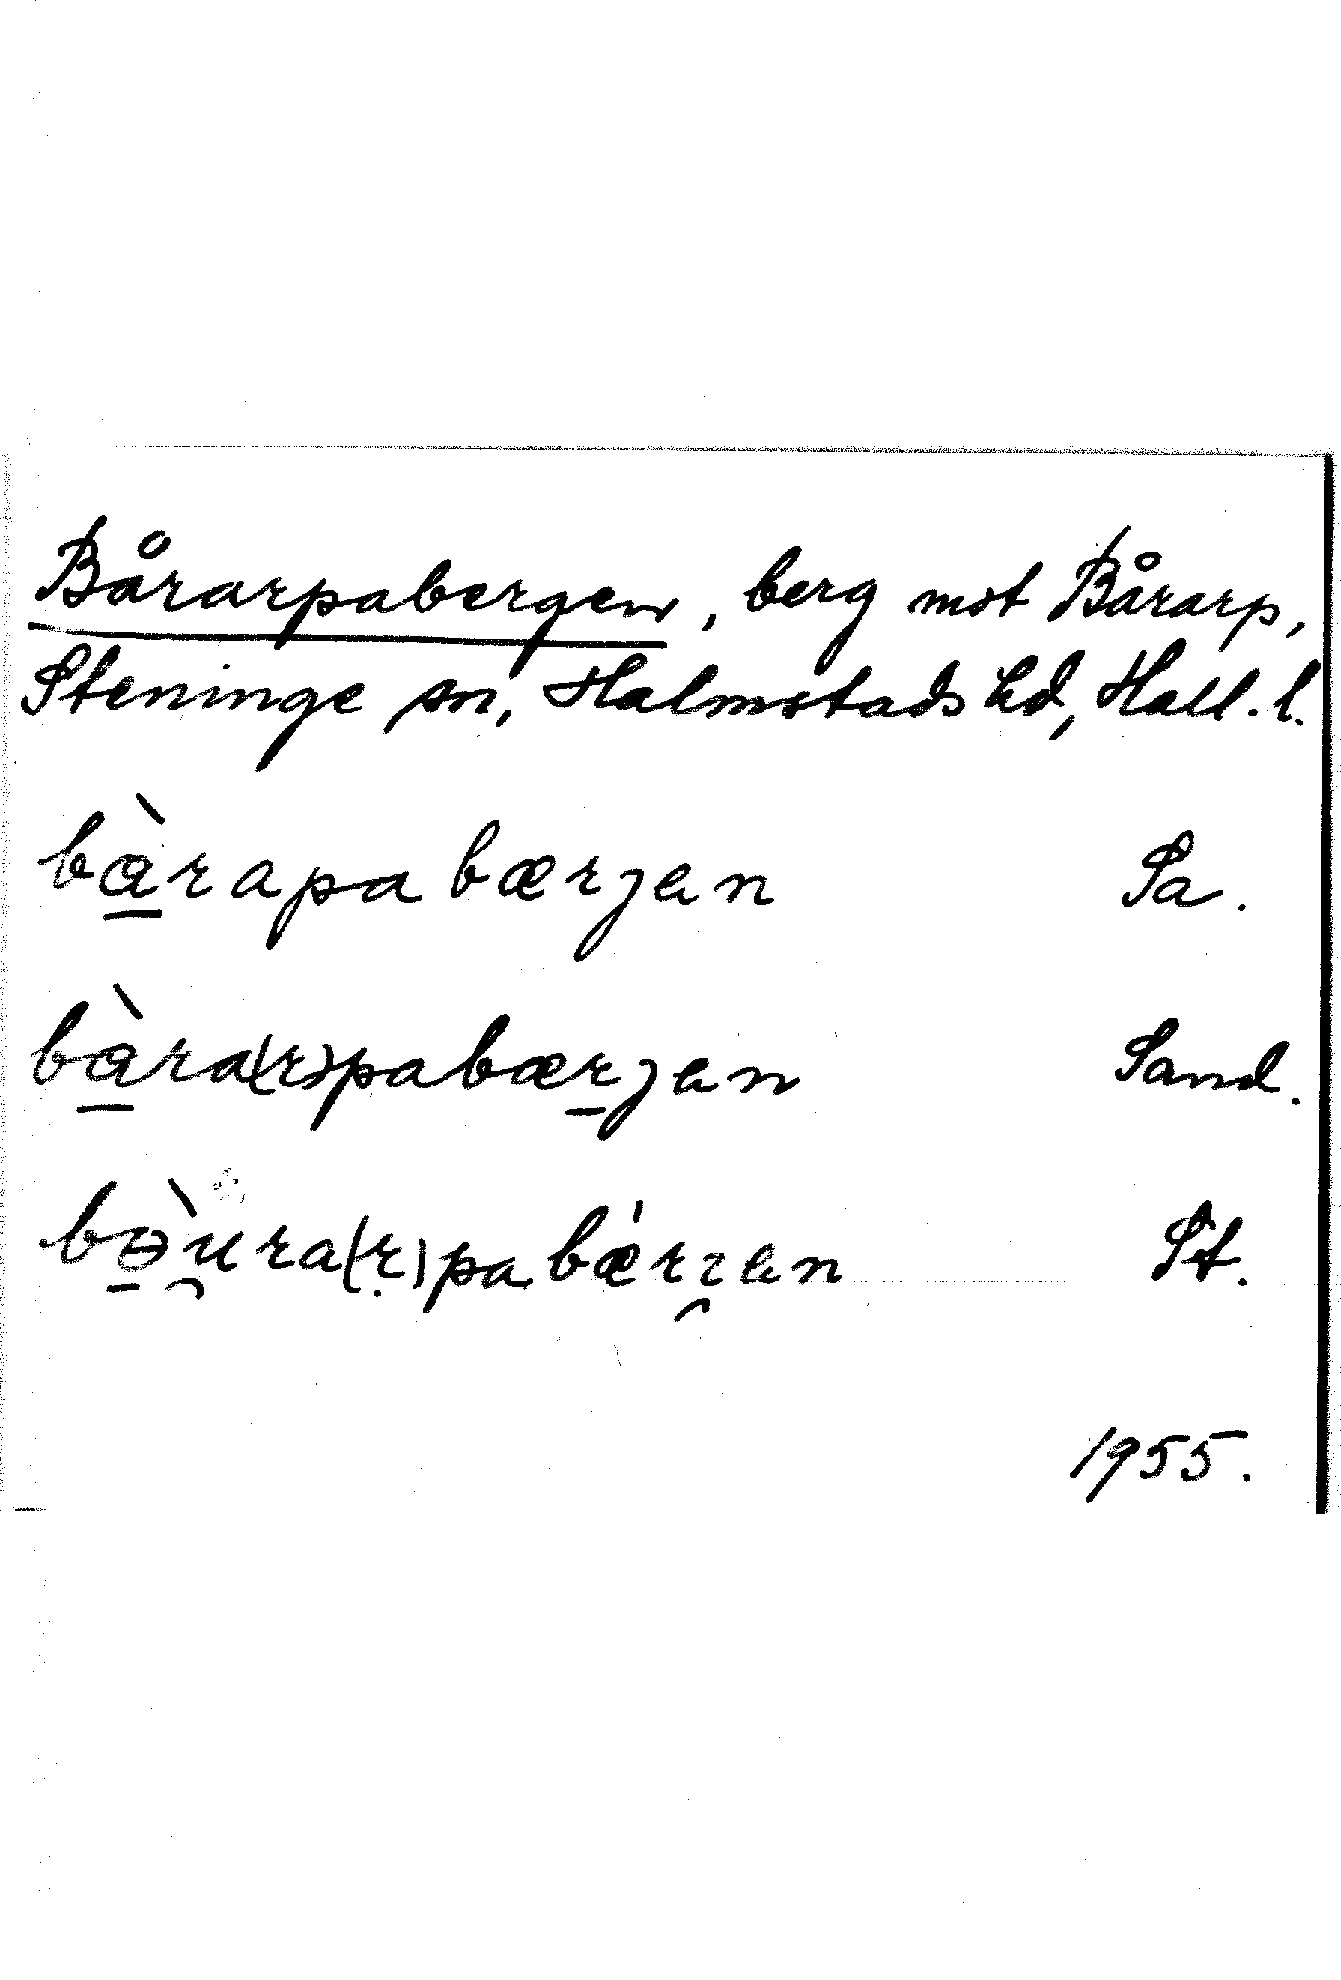 Bårarpabergen, berg mot Bårarp,
Steninge sn, Halmstads hd, Hall. l.
bàrapabærjen Sa.
bàra(r)pabærjen Sand.
bɵ̀u̯ra(r)pabærɪ̯en St.
1955.